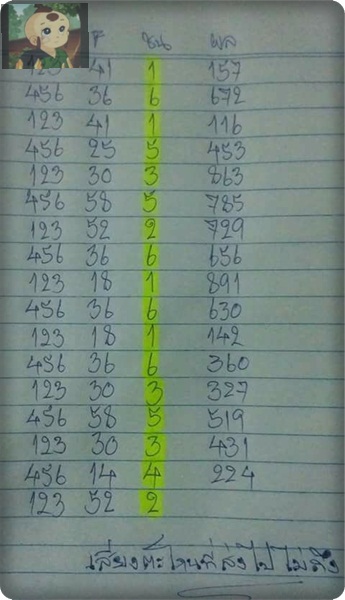 ชน ผล
123 41 1 157
456 36 6 672
123 41 1 116
456 25 5 453
123 30 3 863
456 58 5 785
123 52 2 729
456 36 6 656
123 18 1 891
456 36 6 630
123 18 1 142
456 36 6 360
123 30 3 327
456 58 5 519
123 30 3 431
456 14 4 224
123 52 2
ที่ส่งไป ไม่ถึง